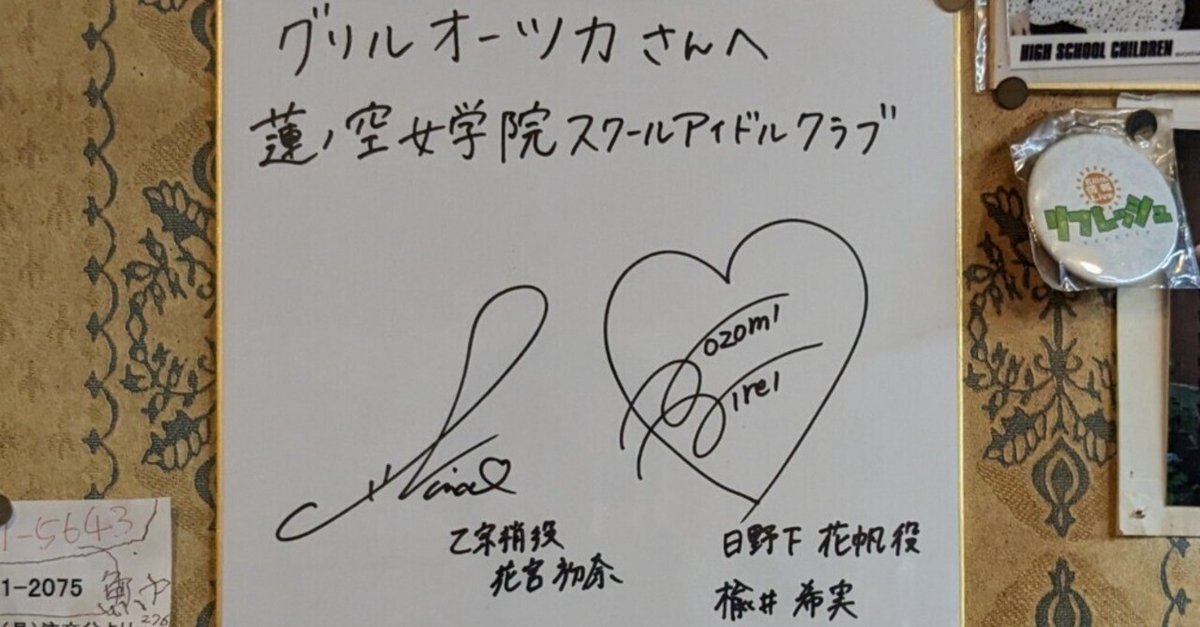 グリルオーツカさんへ
蓮ノ空女学院スクールアイドルクラブ
Nozomi
Nirei
Nina
乙宗梢役
花宮初奈
日野下花帆役
楡井希実
HIGH SCHOOL CHILDREN
リフレッシュ
1-5643
1-2075